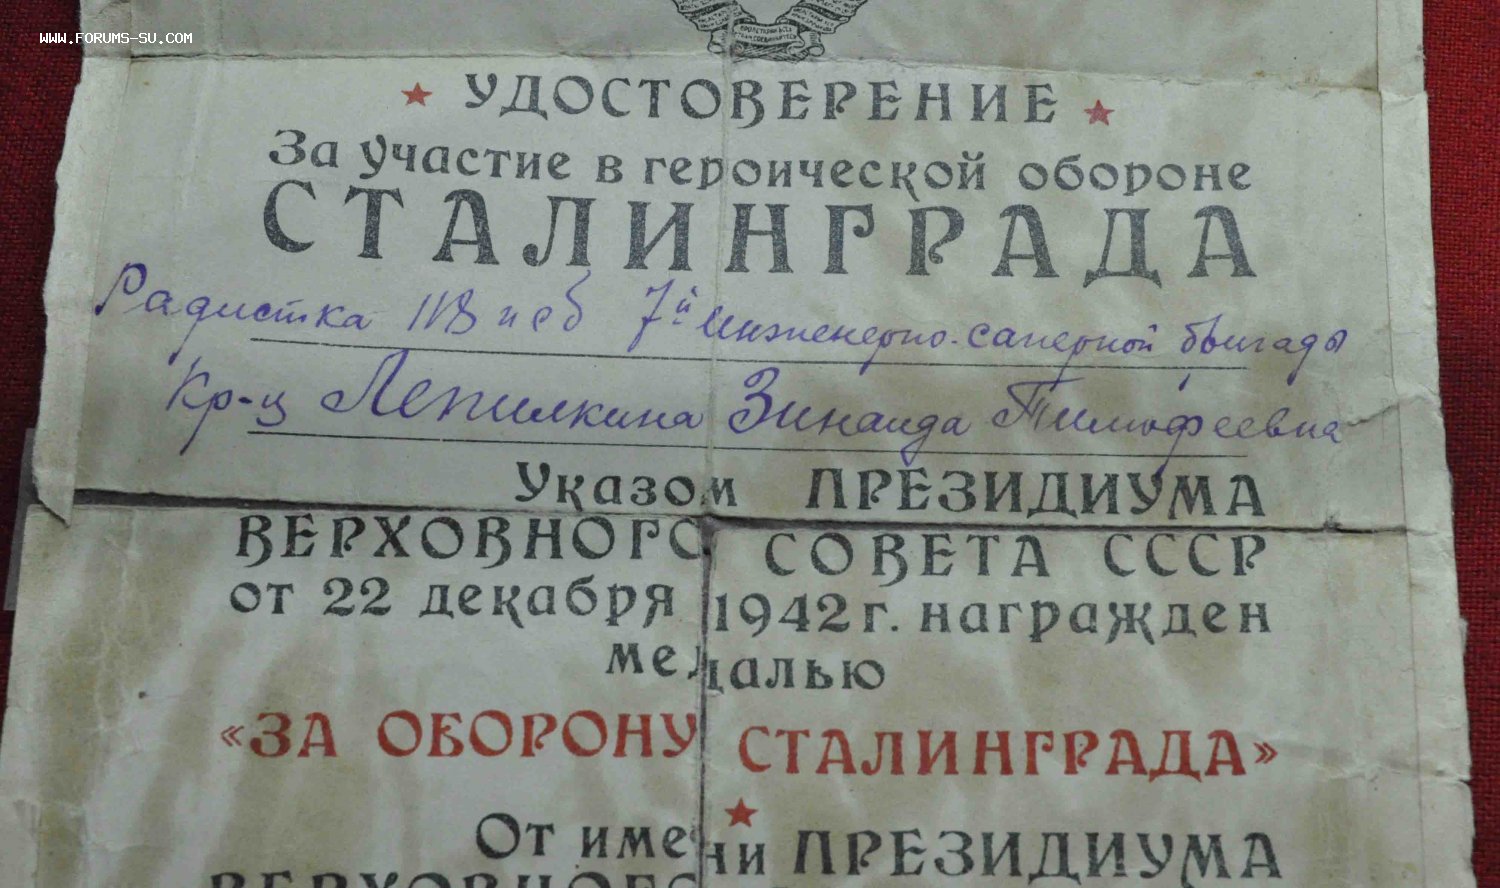 WWW.FORUMS-SU.COM
ПРОЛЕТАРИИ ВСЕХ
СТРАН СОЕДИНЯЙТЕСЬ
УДОСТОВЕРЕНИЕ
За участие в героической обороне
СТАЛИНГРАДА
Радистка 118 исб 7й инженерно-саперной бригады
Кр-ц Лепилкина Зинаида Тимофеевна
Указом ПРЕЗИДИУМА
ВЕРХОВНОГО СОВЕТА СССР
от 22 декабря 1942 г. награжден
медалью
«ЗА ОБОРОНУ СТАЛИНГРАДА»
От имени ПРЕЗИДИУМА
ВЕРХОВНОГО